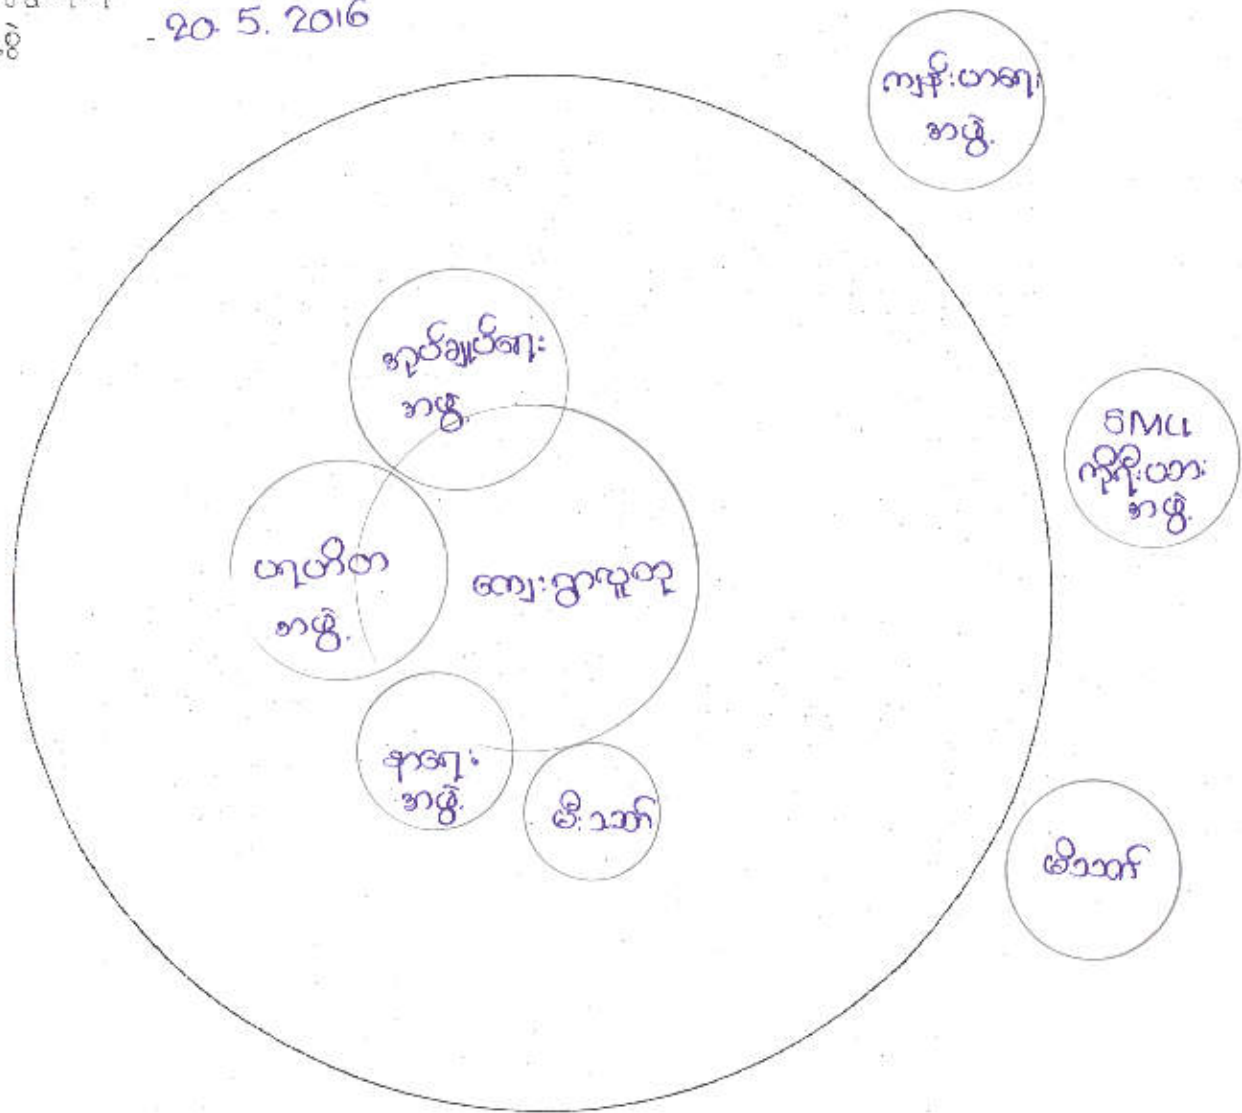 20. 5. 2016
ကျန်းမာရေး
အဖွဲ့
အုပ်ချုပ်ရေး
အဖွဲ့
SMU
ကိုရီးယား
အဖွဲ့
ပရဟိတ
အဖွဲ့
ကျေးရွာလူထု
နာရေး
အဖွဲ့
မီးသတ်
မီးသတ်